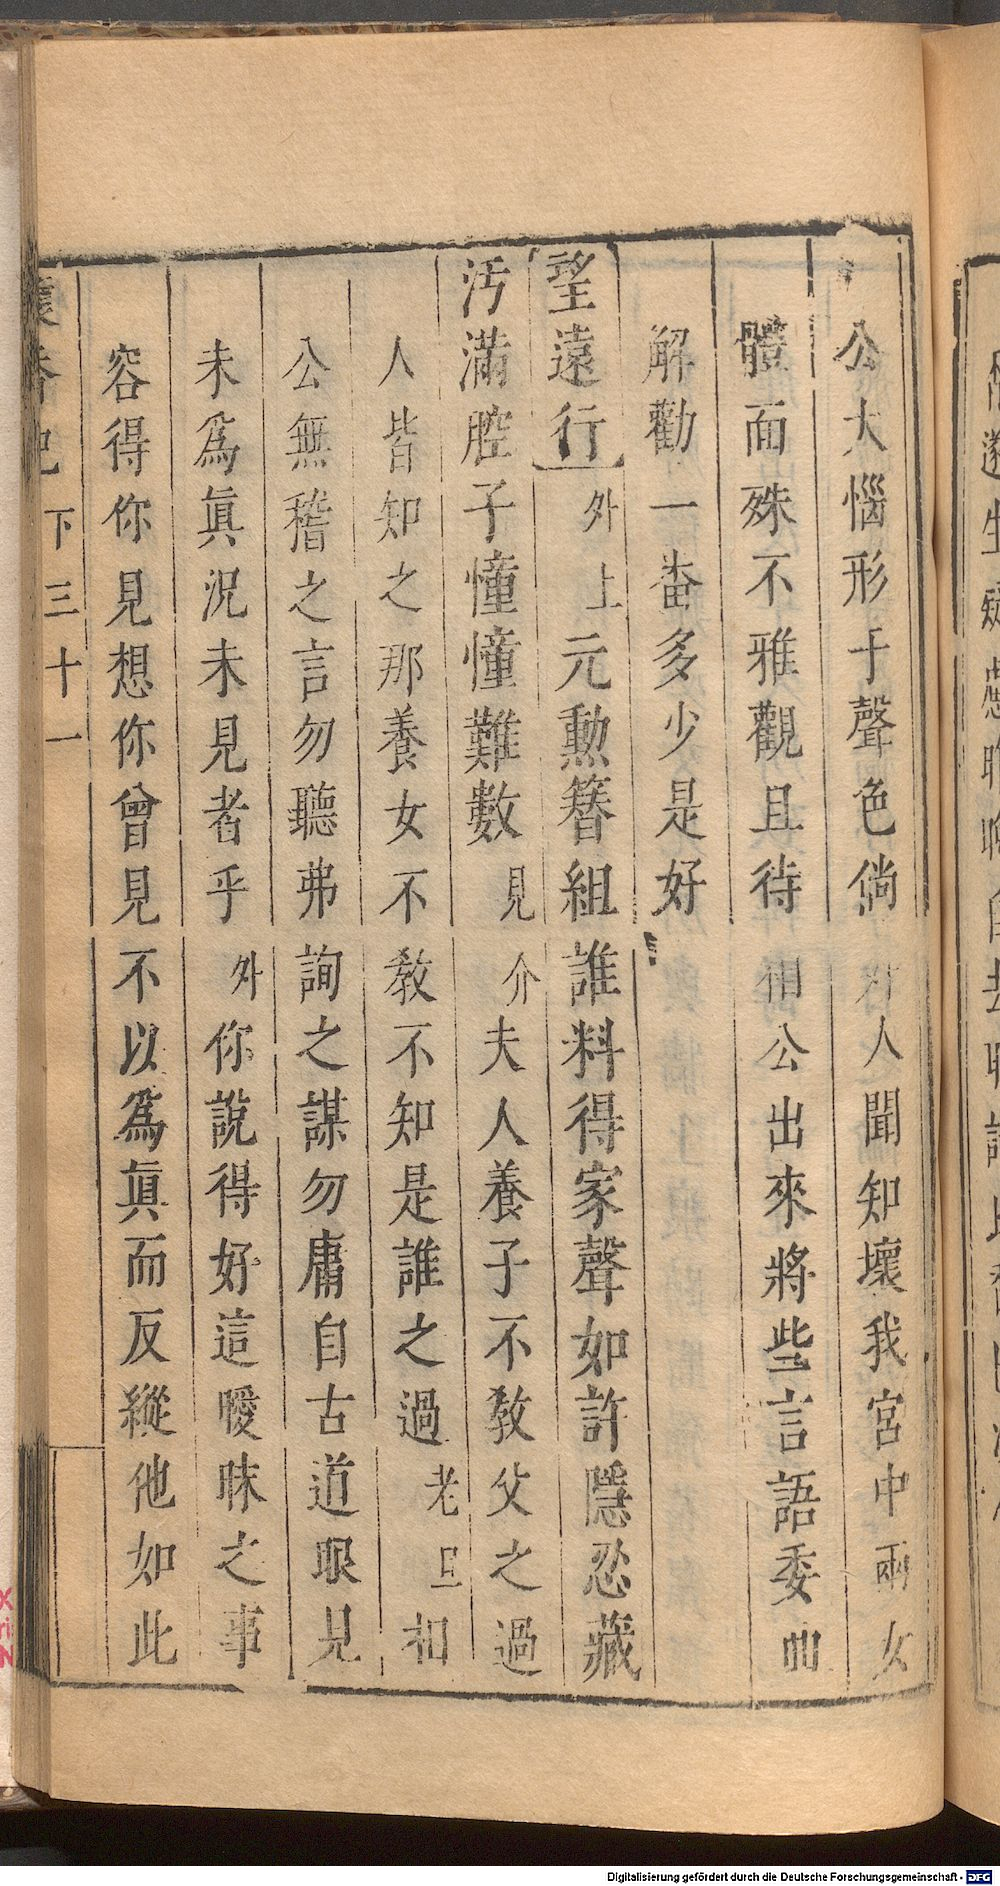 公大惱形于聲色倘外人聞知壞我宮中兩女
體面殊不雅觀且待相公出來將些言語委曲
解勸一畨多少是好
望遠行外上元勲簪組誰料得家聲如許隱忍藏
汚滿腔子憧憧難數見介夫人養子不敎父之過
人皆知之那養女不敎不知是誰之過老旦相
公無稽之言勿聽弗詢之謀勿庸自古道眼見
未爲眞況未見者乎外你說得好這曖昧之事
容得你見想你曾見不以爲眞而反縱他如此
懷香記 下 三十一
Digitalisierung gefördert durch die Deutsche Forschungsgemeinschaft - DFG